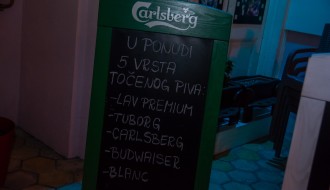 Carlsberg
U PONUDI
5 VRSTA
TOČENOG PIVA:
-LAV PREMIUM
-TUBORG
-CARLSBERG
-BUDWAISER
-BLANC